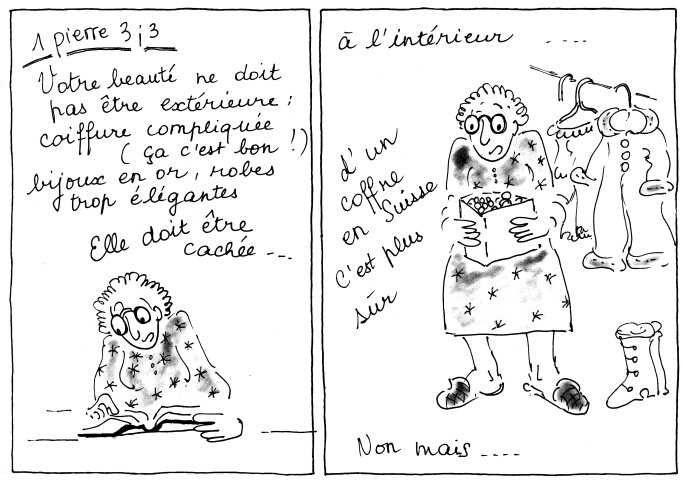 1 pierre 3;3
Votre beauté ne doit
pas être extérieure :
coiffure compliquée
( ça c'est bon !)
bijoux en or, robes
trop élégantes
Elle doit être
cachée ---
à l'intérieur ----
d'un
coffre
en Suisse
c'est plus
sûr
Non mais ----